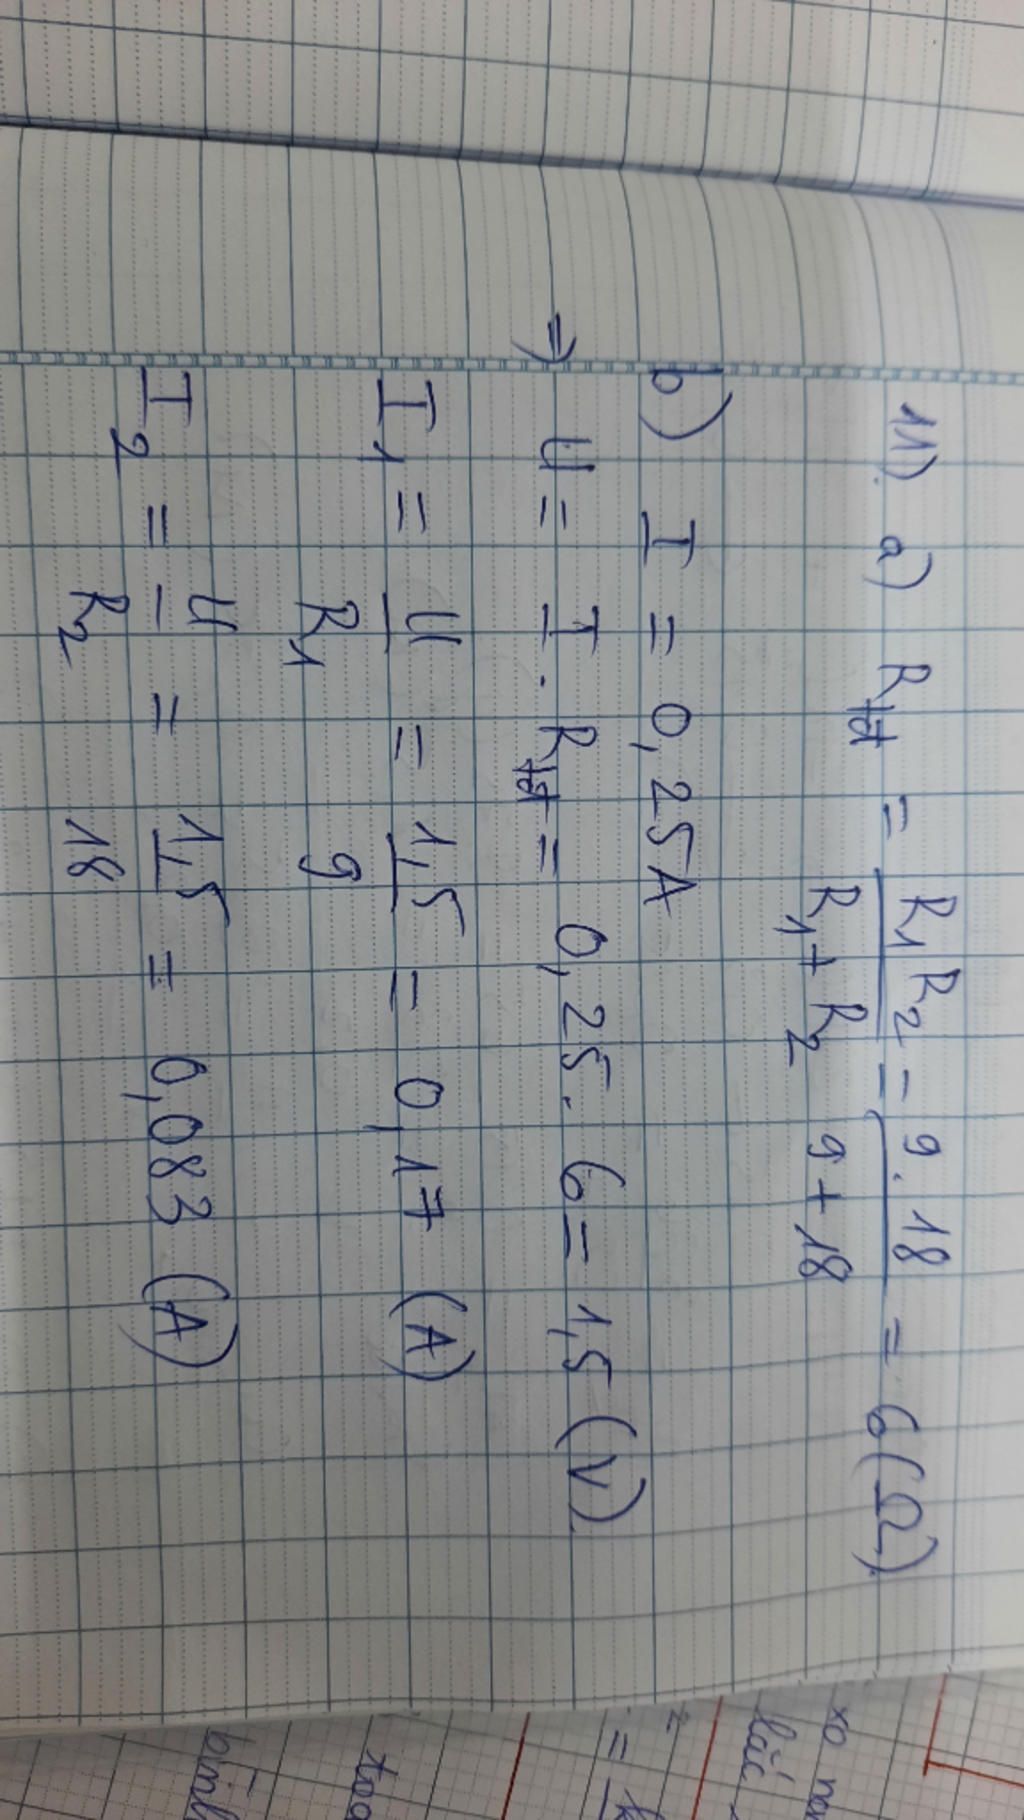 11) a) Rtđ = R1R2 / R1 + R2 = 9.18 / 9 + 18 = 6 (Ω)
b) I = 0,25A
=) U = I . Rtđ = 0,25 . 6 = 1,5 (V)
I1 = U / R1 = 1,5 / 9 = 0,17 (A)
I2 = U / R2 = 1,5 / 18 = 0,083 (A)
lúc